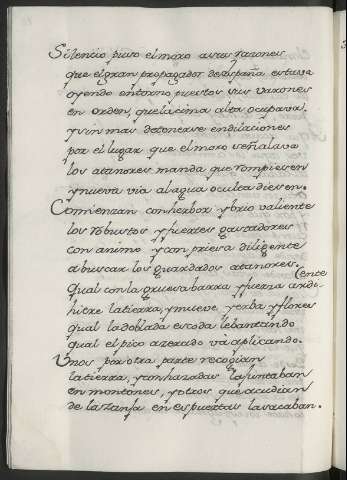 Silencio puso el moro a sus razones
que el gran propagador de españa estuva
oyendo entorno puestos sus varones
en orden, que la cima alta ocupava,
y sin mas detenerse en dilaciones
por el lugar que el moro señalava
los atanores manda que rompiesen
y nueva via al agua oculta diesen.
Comienzan con herbor y brio valiente
los robustos y fuertes gastadores
con animo y con priesa diligente
a buscar los guardados atanores.
qual con la gruesa barra y fuerza ardi(ente
hitre la tierra, y mueve yerba y flores
qual la doblada escoda lebantando
qual el pico azerado va aplicando.
Unos por otra parte recogian
la tierra, y con hazadas la juntaban
en montones, y otros que acudian
de la zanja en espuertas la sacaban.